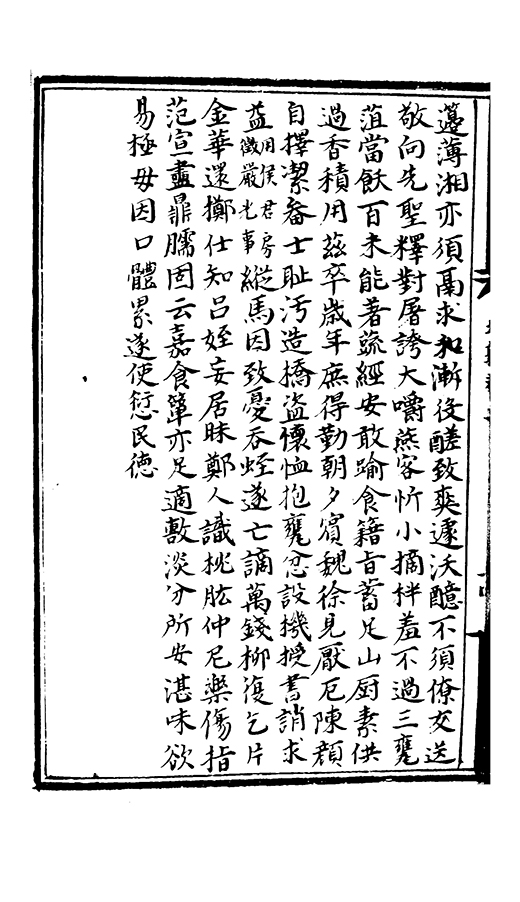 薳薄湘亦須鬲求和漸後醝致爽遽沃醷不須僚友送
敬向先聖釋對屠誇大嚼燕客忻小摘拌羞不過三甕
菹當飫百未能著蔬經安敢踰食籍旨蓄足山厨素供
過香積用茲卒歲年庶得勤朝夕賓魏徐見厭厄陳顔
自擇潔畚士恥汚造撟盜懷恤抱甕忿設機授書誚求
益用侯君房徵嚴光事縱馬因致憂吞蛭遂亡謫萬錢柳復乞片
金華還擲仕知呂姪妄居昧鄭人識桃肱仲尼樂傷指
范宣盡鼎臑因云嘉食簞亦足適敷淡分所安湛味欲
易極毋因口體累遂使愆民德